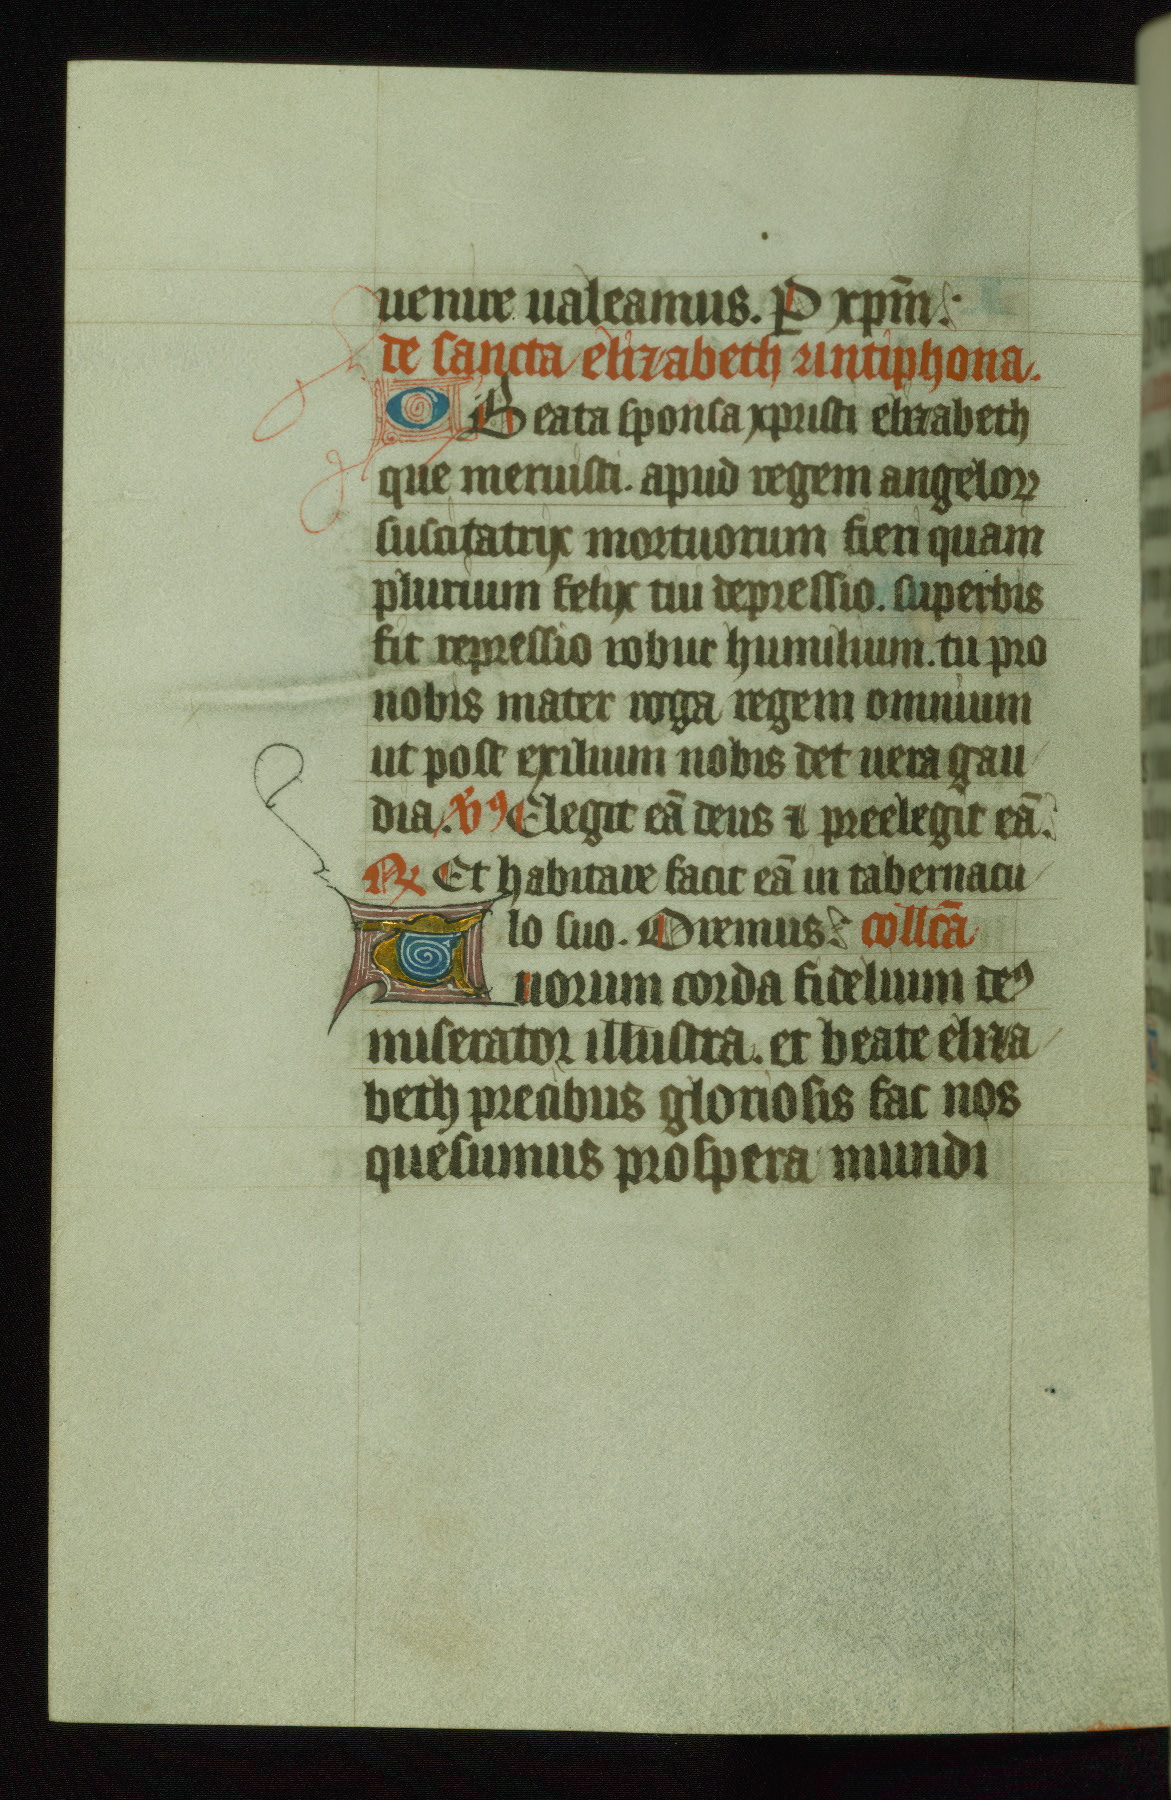 uenire ualeamus. P xp̄m:
de sancta elizabeth antiphona.
O Beata sponsa xpristi elizabeth
que meruisti. apud regem angeloꝝ
suscitatrix mortuorum fieri quam
plurium felix tui depressio. superbis
fit repressio robur humilium. tu pro
nobis mater roga regem omnium
ut post exilium nobis det uera gau
dia. v̄ꝰ Elegit eā deus ⁊ preelegit eā.
Rx Et habitare facit eā in tabernacu
lo suo. Oremus: collcā
Tuorum corda fidelium deꝰ
miserator illustra. et beate eliza
beth precibus gloriosis fac nos
quesumus prospera mundi